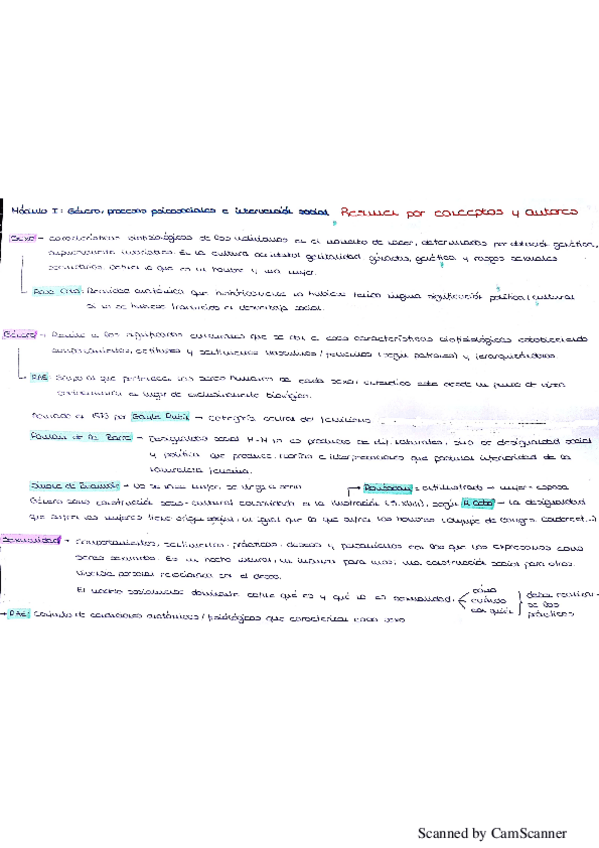 Módulo I: Género, procesos psicosociales e intervención social Resumen por conceptos y autores
Sexo - características biofisiológicas de los individuos en el momento de nacer, determinadas por dotación genética,
. Es la cultura genitalidad gónadas, genética y rasgos sexuales
secundarios, define lo que es un hombre y una mujer.
Rosa Cobo: Realidad anatómica que históricamente no hubiese tenido ninguna significación política/cultural
si no se hubiese traducido en desventaja social.
Género - a los significados culturales que se da a esas características biofisiológicas estableciendo
comportamientos, actitudes y sentimientos masculinos/femeninos (según patrones) y jerarquizándolos.
RAE: Grupo al que pertenecen los seres humanos de cada sexo, entendido este desde un punto de vista
sociocultural en lugar de exclusivamente biológico.
1975 por Gayle Rubin → categoría central del feminismo
Poulain de la Barre - Desigualdad social H-M no es producto de dif. naturales, sino de desigualdad social
y política que produce teorías e interpretaciones que postulan inferioridad de la
naturaleza femenina.
Simone de Beauvoir - No se nace mujer, se llega a serlo → Rousseau: antiilustrado - mujer esposa
Género como construcción socio-cultural en la ilustración (S. XVIII), según R. Cobo - La desigualdad
que sufren las mujeres tiene origen social, al igual que la que sufren los hombres
Sexualidad - Comportamientos, sentimientos, prácticas, deseos y pensamientos con los que nos expresamos como
seres sexuados. Es un hecho natural, un instinto para unos; una construcción social para otros.
relaciones con el deseo.
El modelo dominante define qué es y qué no es sexualidad. cómo cuándo con quién
de las prácticas
RAE: Conjunto de condiciones anatómicas/fisiológicas que caracterizan cada sexo
Scanned by CamScanner